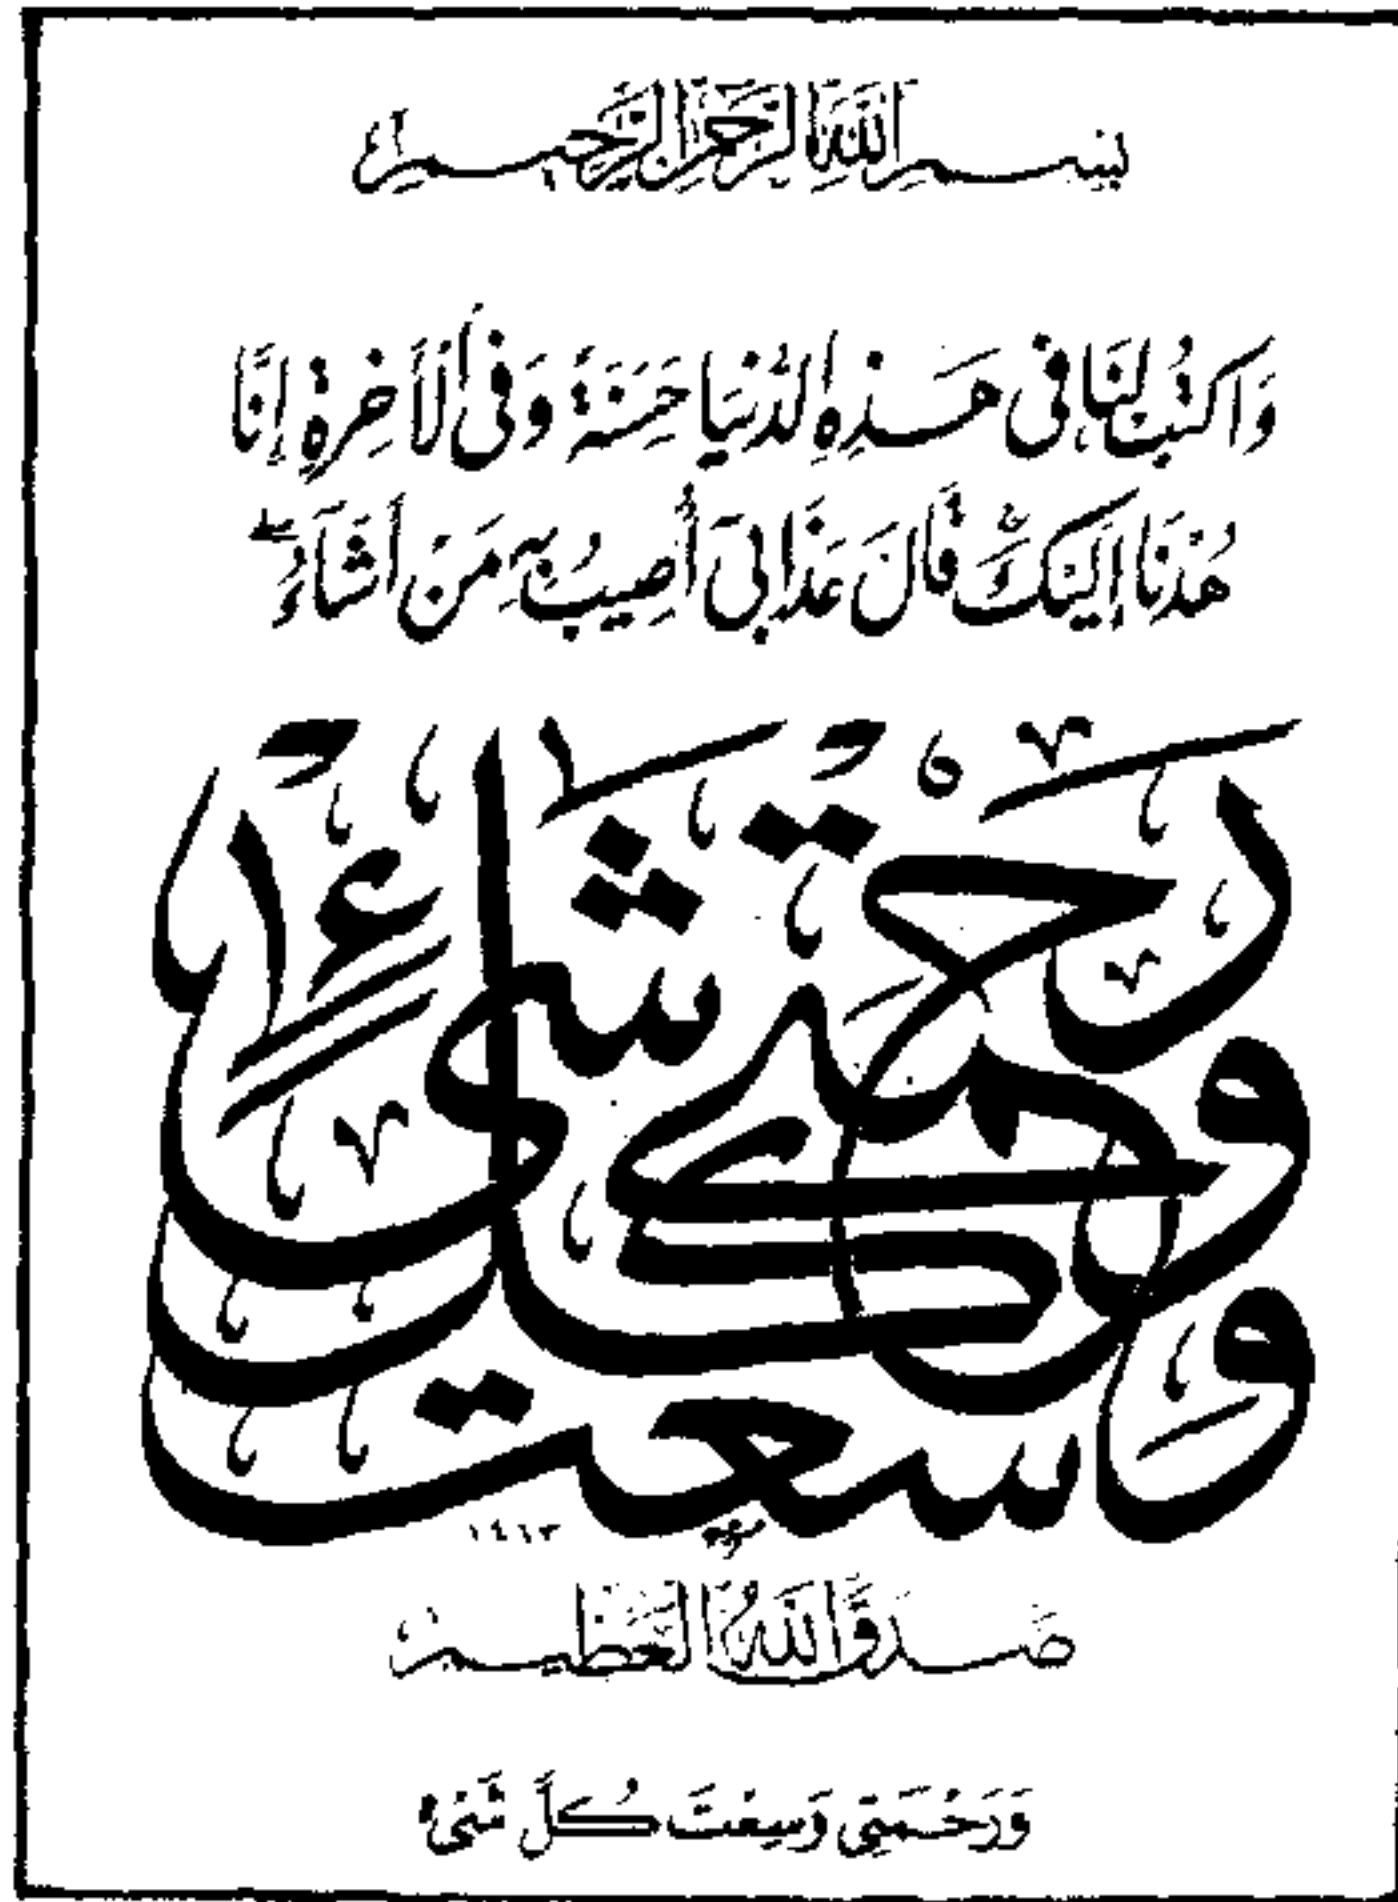 بِسْمِ اللَّهِ الرَّحْمَٰنِ الرَّحِيمِ
وَاكْتُبْ لَنَا فِى هَٰذِهِ الدُّنْيَا حَسَنَةً وَفِى الْآخِرَةِ إِنَّا
هُدْنَا إِلَيْكَ قَالَ عَذَابِىٓ أُصِيبُ بِهِ مَنْ أَشَآءُ
وَرَحْمَتِى وَسِعَتْ كُلَّ شَىْءٍ
١٤١٣
صَدَقَ اللَّهُ الْعَظِيمُ
وَرَحْمَتِى وَسِعَتْ كُلَّ شَىْءٍ